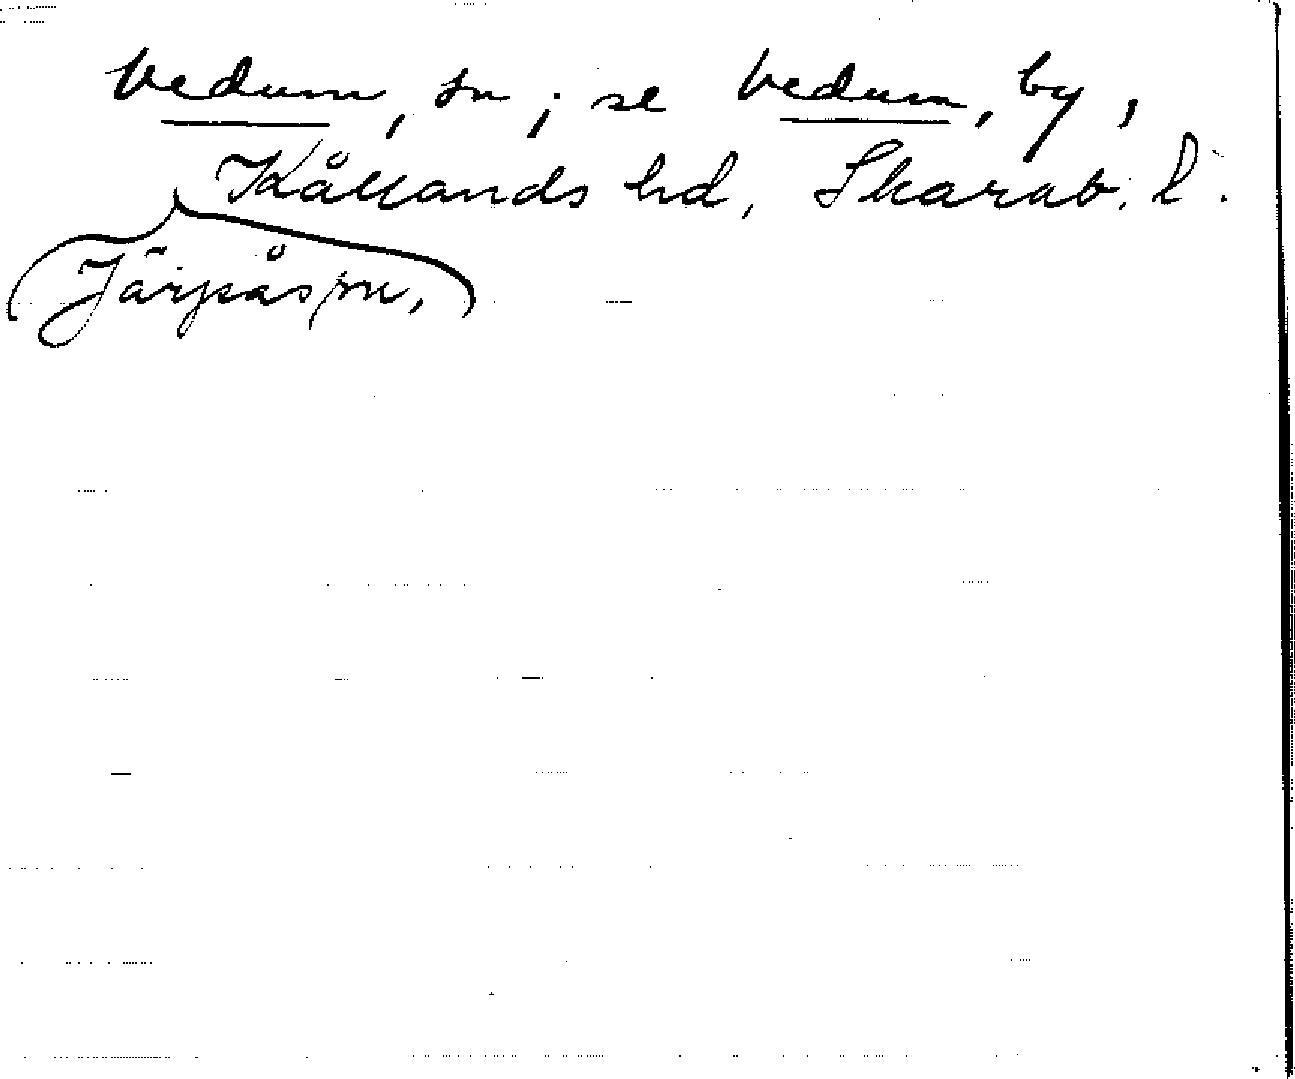 Vedum, sn; se Vedum, by,
Kållands hd, Skarab. l.
Järpås sn,